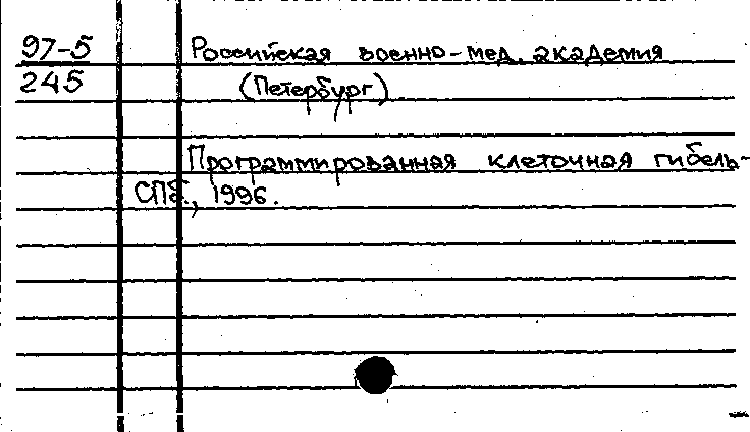 97-5 Российская военно-мед. академия
245 (Петербург)
Программированная клеточная гибель-
СПб., 1996.